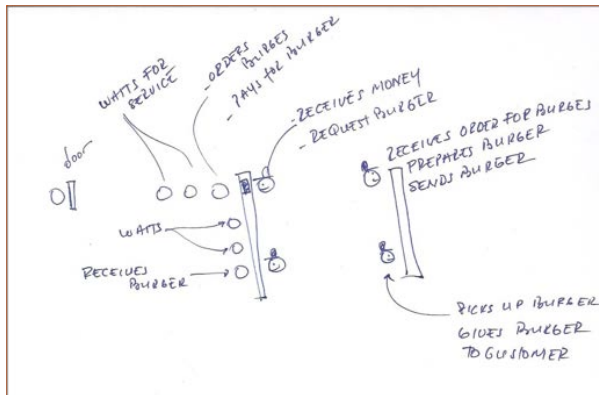 WAITS FOR
SERVICE
- ORDERS
BURGES
- PAYS FOR BURGER
- RECEIVES MONEY
- REQUEST BURGER
door
RECEIVES ORDER FOR BURGES
PREPARES BURGER
SENDS BURGER
WAITS
RECEIVES
BURGER
PICKS UP BURGER
GIVES BURGER
TO CUSTOMER